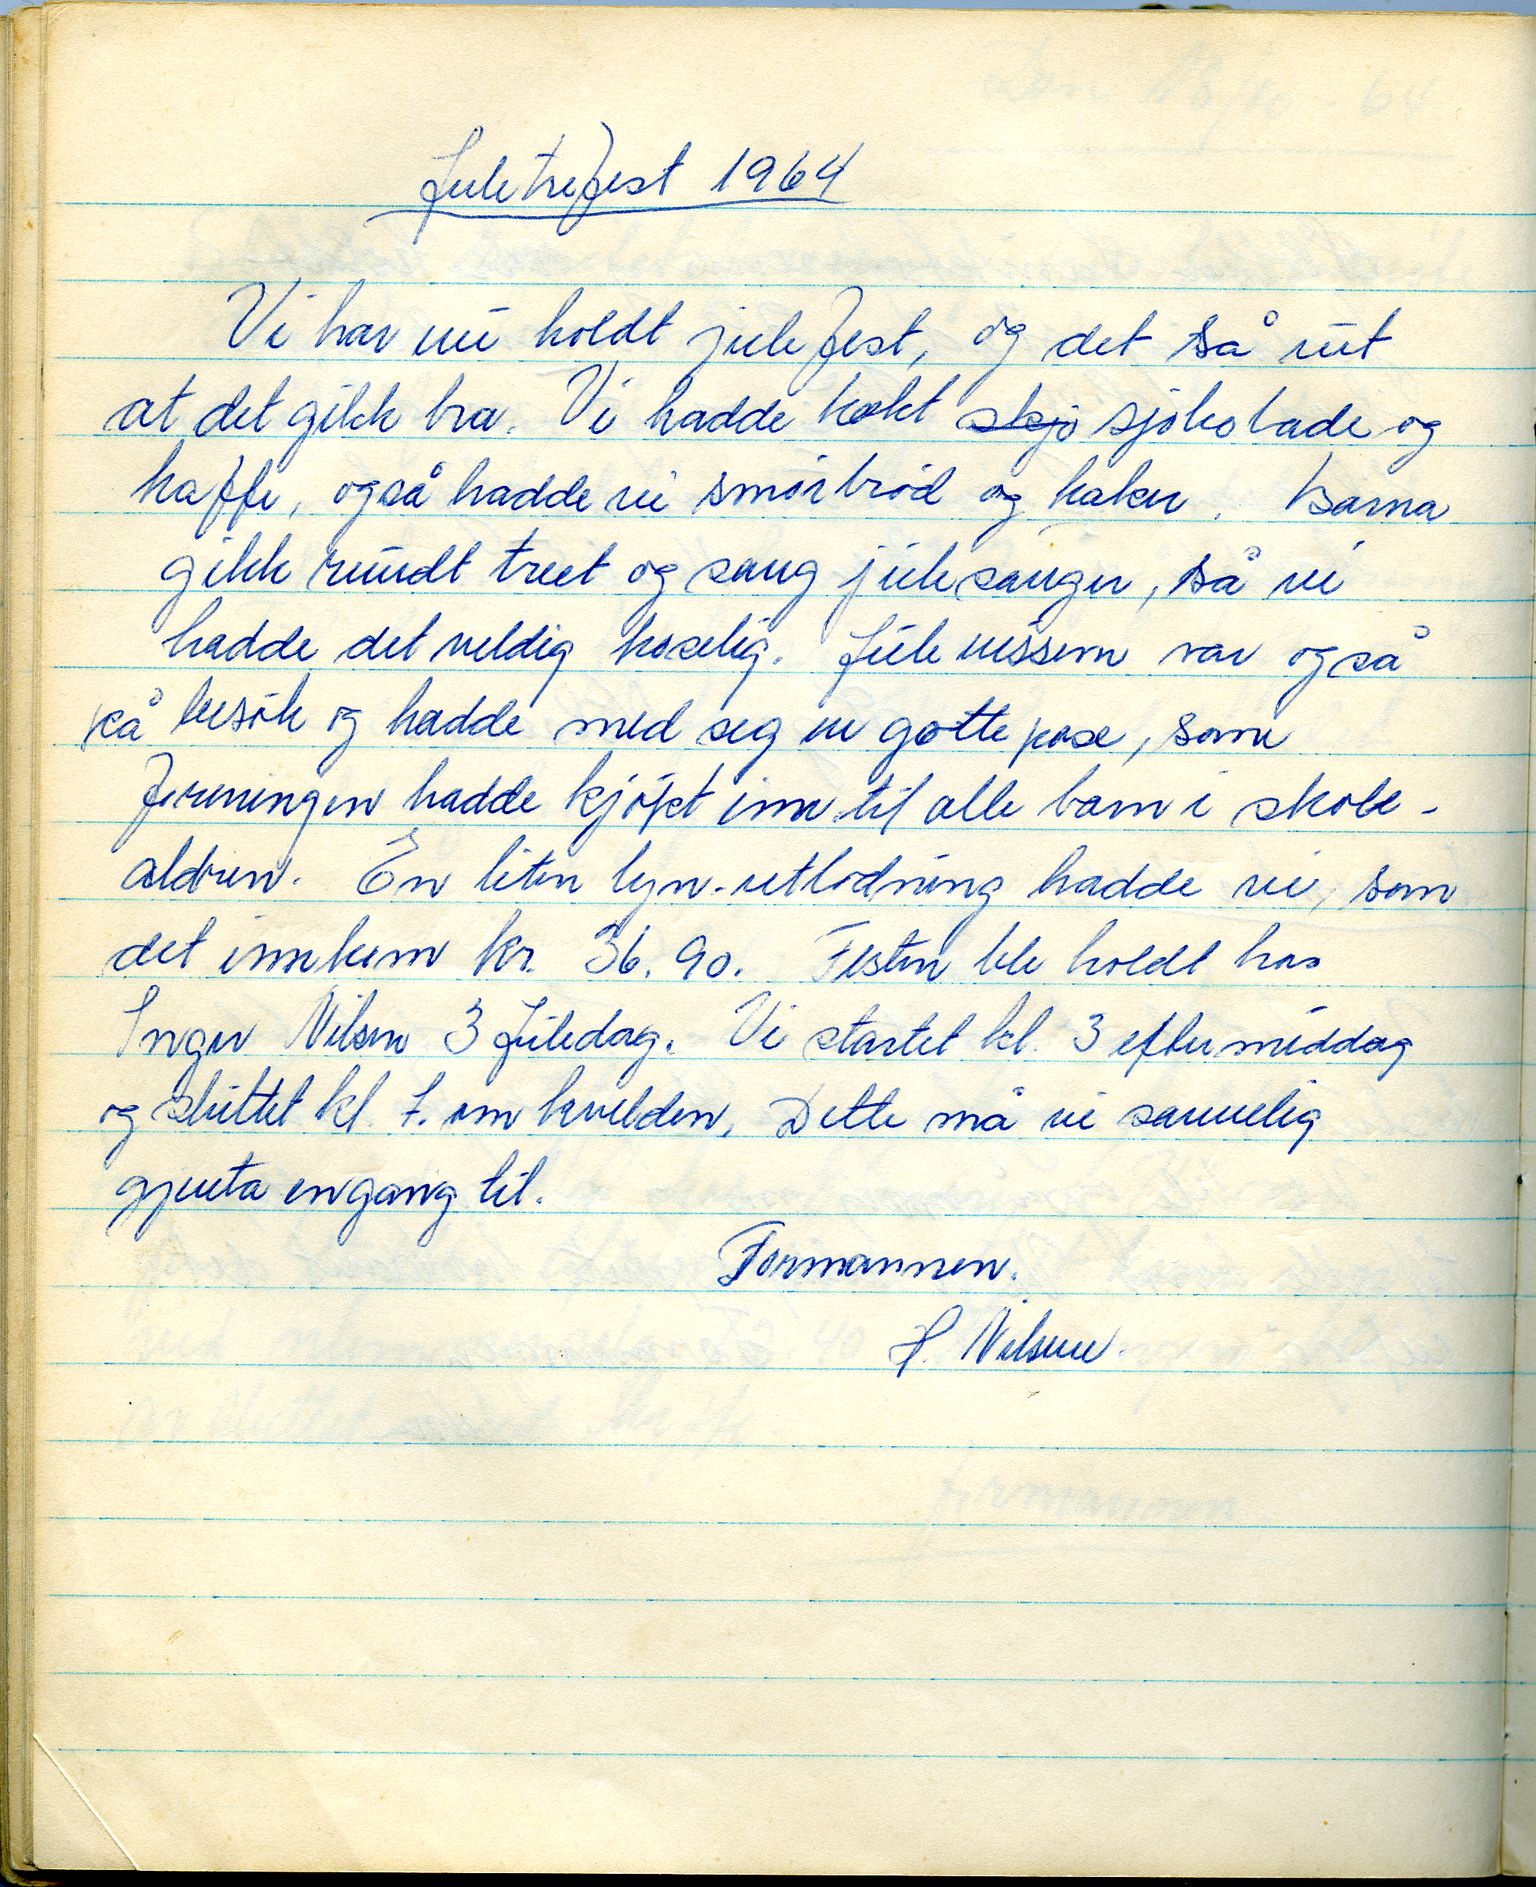 Juletrefest 1964
Vi har nu holdt julefest, og det så ut
at det gikk bra. Vi hadde kokt skjo sjokolade og
kaffe, også hadde vi smörbröd og kaker. Barna
gikk rundt treet og sang julesanger, så vi
hadde det veldig koselig. Julenissem var også
på besök og hadde med seg en gottepose, som
foreningen hadde kjöpt inn til alle barn i skole-
aldren. En liten lyn-utlodning hadde vi, som
det innkom kr. 36.90. Festen ble holdt hos
Inger Nilsen 3 Juledag. Vi startet kl. 3 eftermiddag
og sluttet kl. 7. om kvelden, Dette må vi sannelig
gjenta engang til.
Formannen.
H. Nilsen.